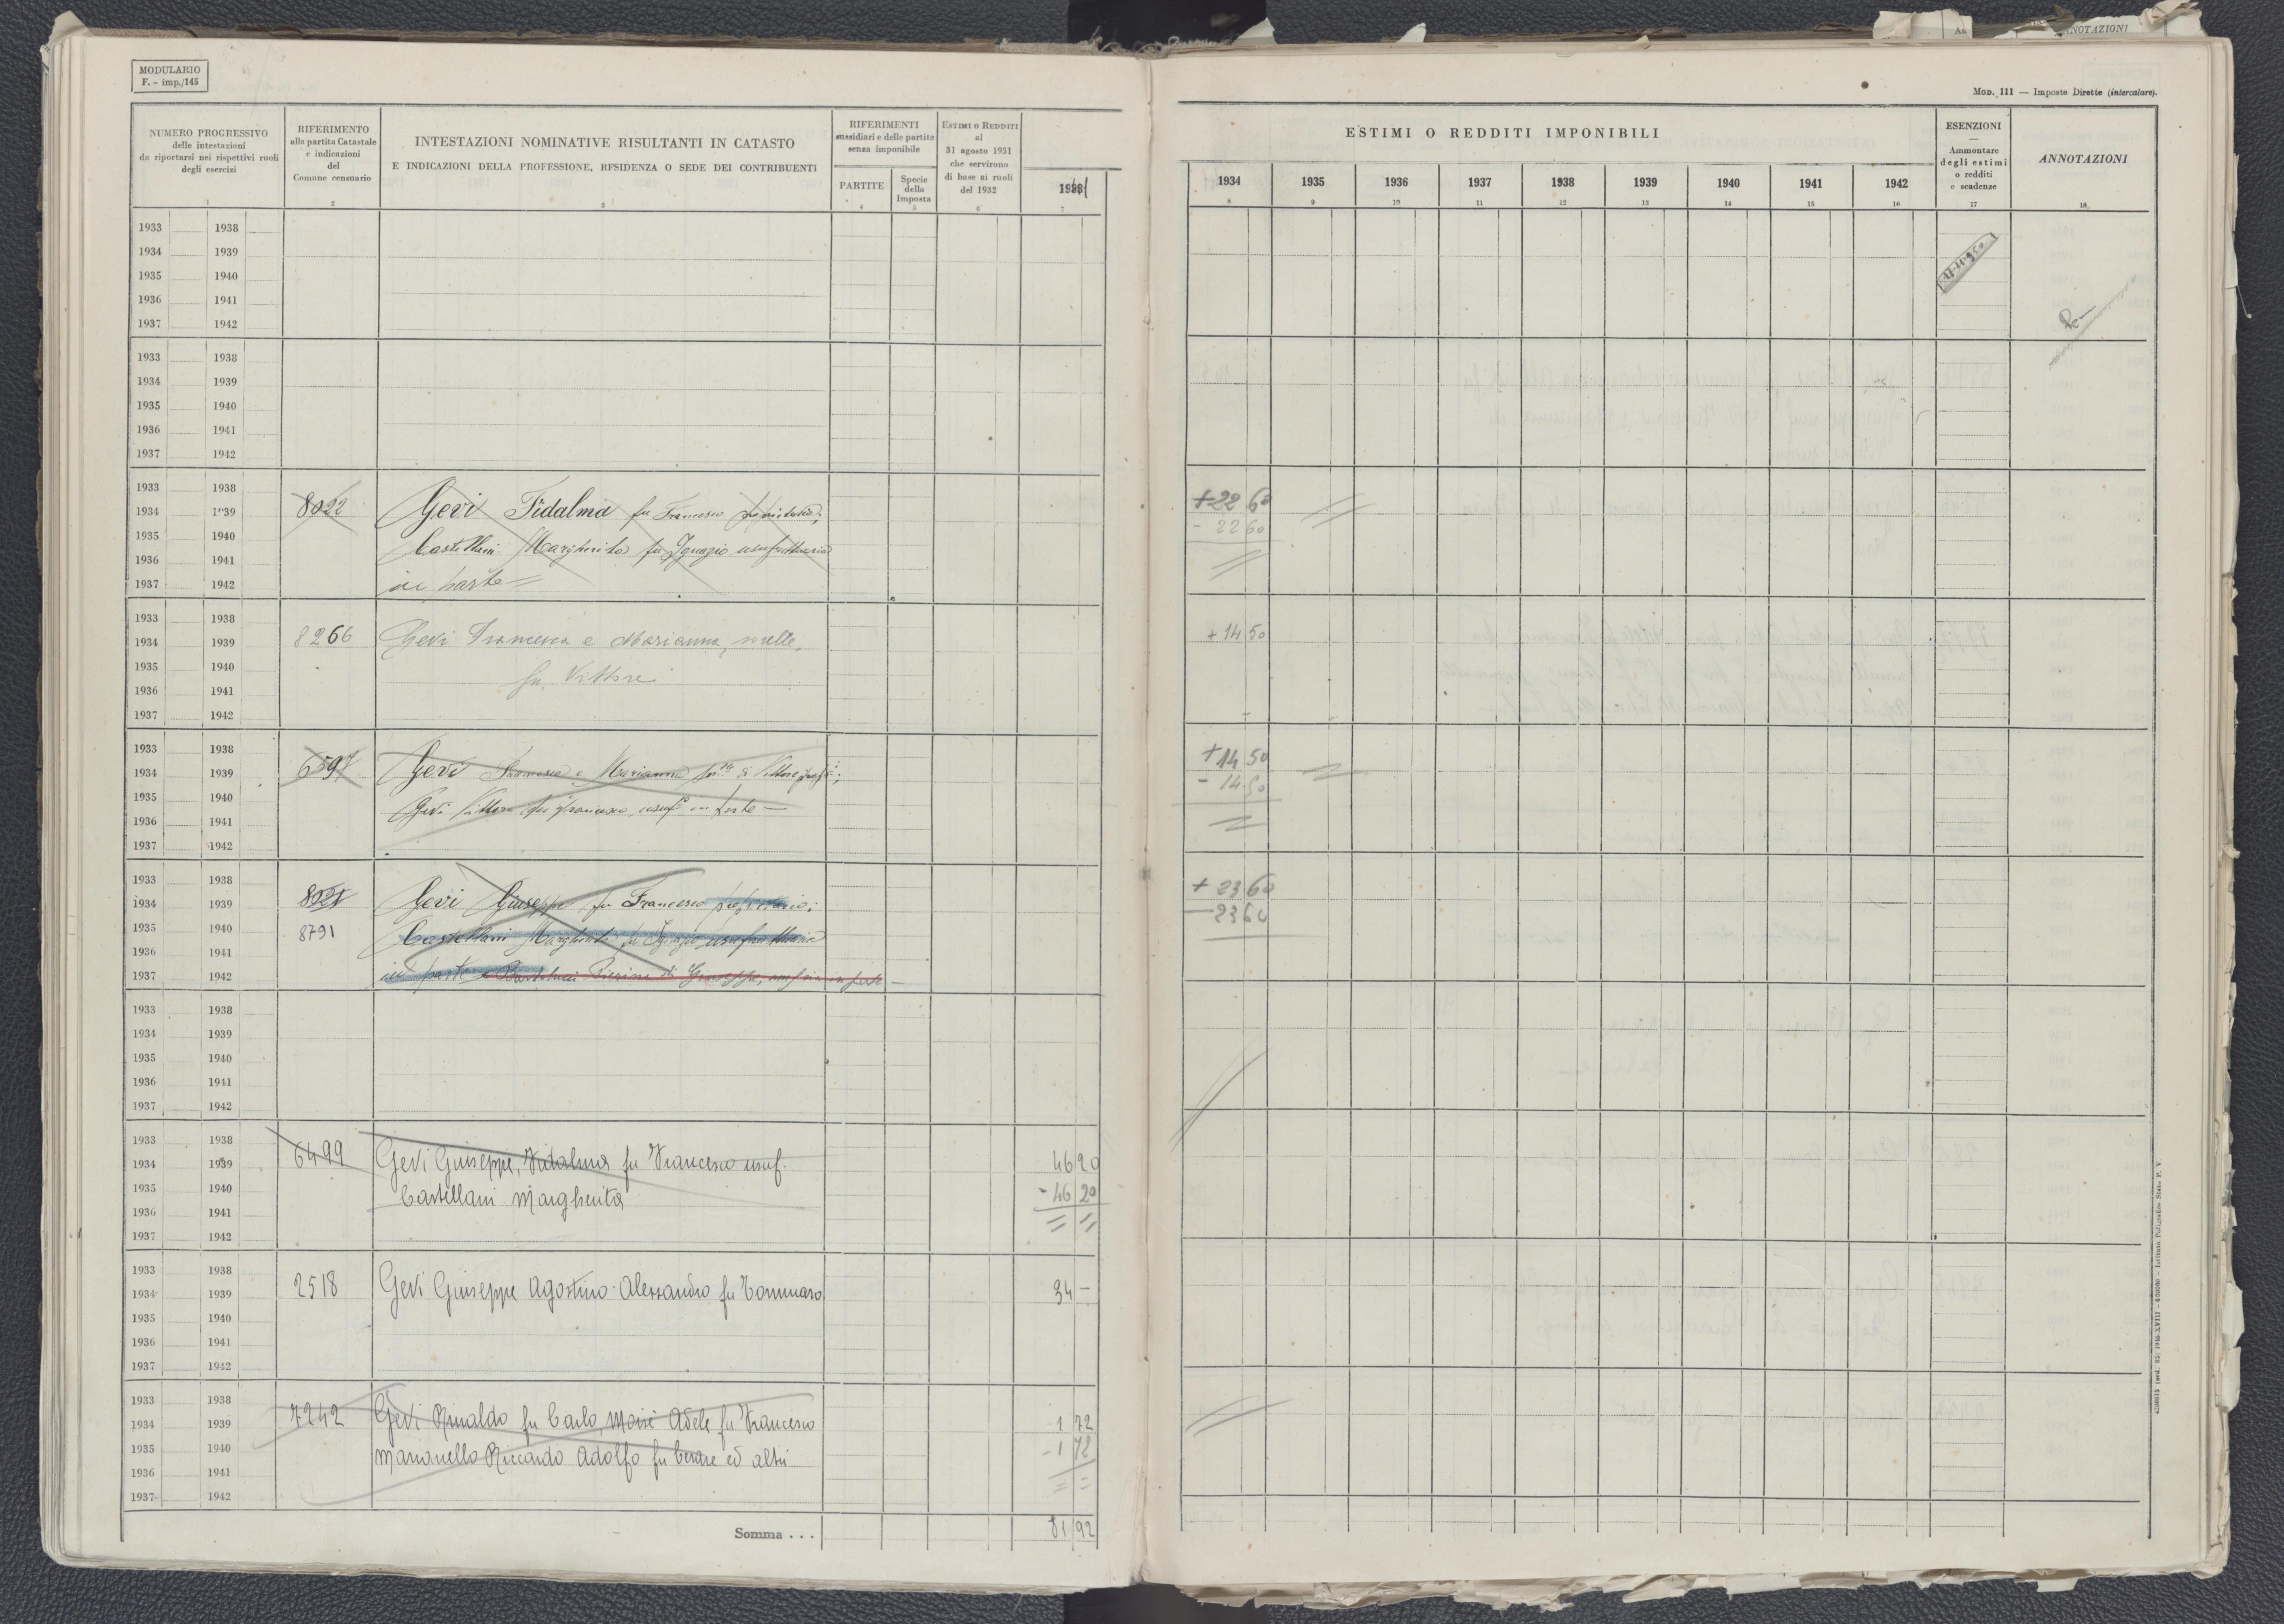 MODULARIO
F. - imp./145
NUMERO PROGRESSIVO
delle intestazioni
da riportarsi nei rispettivi ruoli
degli esercizi
1
RIFERIMENTO
alla partita Catastale
e indicazioni
del
Comune censuario
2
INTESTAZIONI NOMINATIVE RISULTANTI IN CATASTO
E INDICAZIONI DELLA PROFESSIONE, RESIDENZA O SEDE DEI CONTRIBUENTI
3
RIFERIMENTI
sussidiari e delle partite
senza imponibile
PARTITE
4
Specie
della
Imposta
5
ESTIMI O REDDITI
al
31 agosto 1931
che servirono
di base ai ruoli
del 1932
6
7
1933 1938
1934 1939
1935 1940
1936 1941
1937 1942
1933 1938
1934 1939
1935 1940
1936 1941
1937 1942
1933 1938
1934 1939
1935 1940
1936 1941
1937 1942
8022
Gevi Fidalma fu Francesco proprietaria;
Castellani Margherita fu Ignazio usufruttuaria
in parte =
1933 1938
1934 1939
1935 1940
1936 1941
1937 1942
8266
Gevi Francesca e Marianna, sorelle,
fu Vittore
1933 1938
1934 1939
1935 1940
1936 1941
1937 1942
6597
Gevi Francesca e Marianna di Vittore
Gevi Vittore fu Francesco usuf. in parte —
1933 1938
1934 1939
1935 1940
1936 1941
1937 1942
8021
8791
Gevi Giuseppe fu Francesco proprietario;
Castellani Margherita fu Ignazio usufruttuaria
in parte e di Giuseppe, in parte —
1933 1938
1934 1939
1935 1940
1936 1941
1937 1942
1933 1938
1934 1939
1935 1940
1936 1941
1937 1942
6499
Gevi Giuseppe, Fidalma fu Francesco usuf.
Castellani Margherita
46 20
- 46 20
= =
1933 1938
1934 1939
1935 1940
1936 1941
1937 1942
2518
Gevi Giuseppe Agostino Alessandro fu Tommaso
34 —
1933 1938
1934 1939
1935 1940
1936 1941
1937 1942
7242
Gevi Rinaldo fu Carlo, Adele fu Francesco
Riccardo Adolfo fu Cesare ed altri
1 72
- 1 72
= =
Somma . . .
81 92
MOD. 111 — Imposte Dirette (intercalare).
ESTIMI O REDDITI IMPONIBILI
1934 1935 1936 1937 1938 1939 1940 1941 1942
8 9 10 11 12 13 14 15 16
ESENZIONI
—
Ammontare
degli estimi
o redditi
e scadenze
17
ANNOTAZIONI
18
+ 22 60
- 22 60
=
+ 14 50
+ 14 50
- 14 50
=
+ 23 60
— 23 60
ANNOTAZIONI